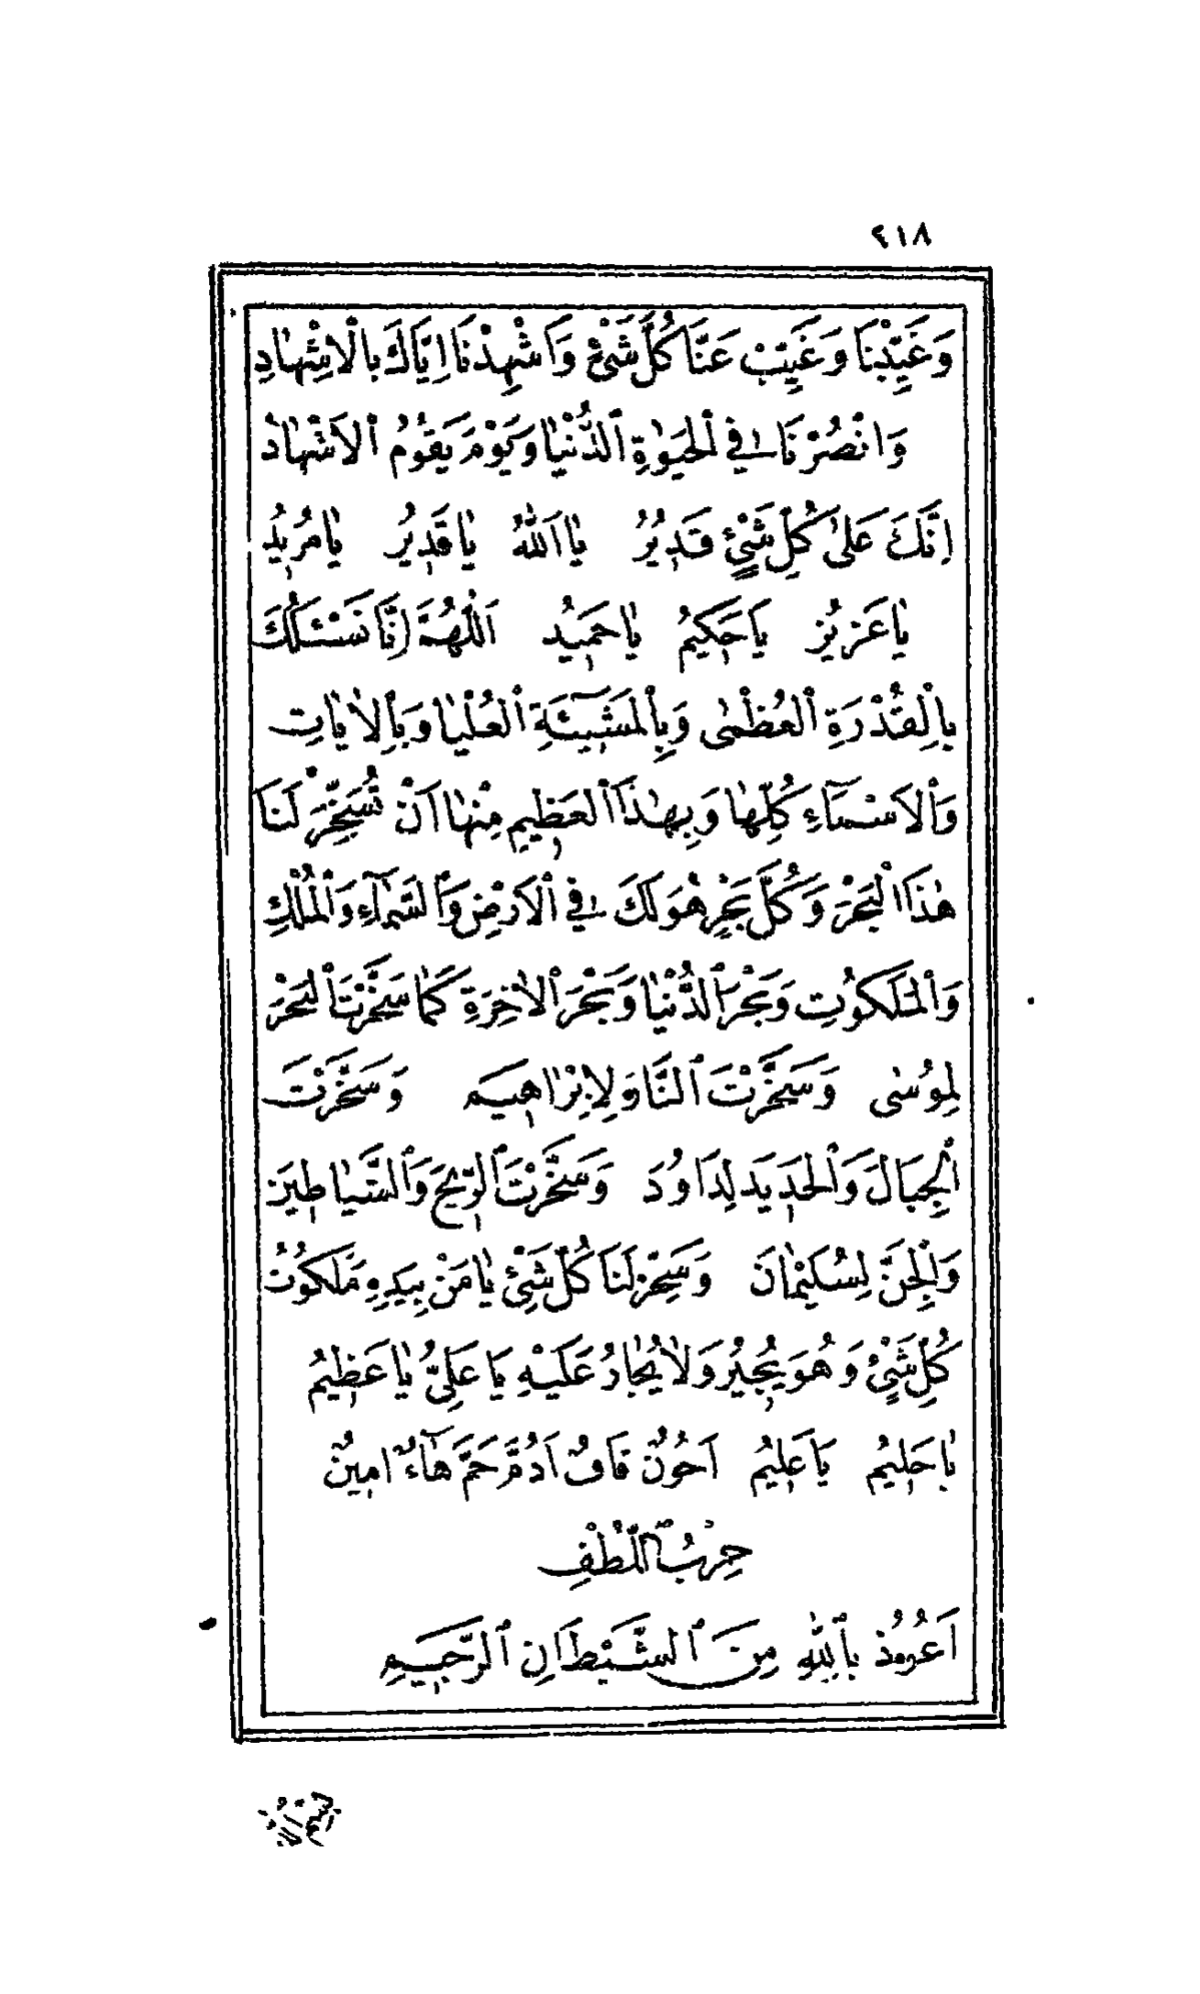 ٤١٨
وَغَيِّبْنَا وَغَيِّبْ عَنَّا كُلَّ شَيْءٍ وَاَشْهِدْنَا اِيَّاكَ بِالْاِشْهَادِ
وَانْصُرْنَا فِي الْحَيٰوةِ الدُّنْيَا وَيَوْمَ يَقُومُ الْاَشْهَادُ
اِنَّكَ عَلٰى كُلِّ شَيْءٍ قَدِيرٌ يَا اَللّٰهُ يَا قَدِيرُ يَا مُرِيدُ
يَا عَزِيزُ يَا حَكِيمُ يَا حَمِيدُ اَللّٰهُمَّ اِنَّا نَسْئَلُكَ
بِالْقُدْرَةِ الْعُظْمٰى وَبِالْمَشِيئَةِ الْعُلْيَا وَبِالْاٰيَاتِ
وَالْاَسْمَاءِ كُلِّهَا وَبِهٰذَا الْعَظِيمِ مِنْهَا اَنْ تُسَخِّرَ لَنَا
هٰذَا الْبَحْرَ وَكُلَّ بَحْرٍ هُوَ لَكَ فِي الْاَرْضِ وَالسَّمَاءِ وَالْمُلْكِ
وَالْمَلَكُوتِ وَبَحْرَ الدُّنْيَا وَبَحْرَ الْاٰخِرَةِ كَمَا سَخَّرْتَ الْبَحْرَ
لِمُوسٰى وَسَخَّرْتَ النَّارَ لِاِبْرَاهِيمَ وَسَخَّرْتَ
الْجِبَالَ وَالْحَدِيدَ لِدَاوُدَ وَسَخَّرْتَ الرِّيحَ وَالشَّيَاطِينَ
وَالْجِنَّ لِسُلَيْمٰانَ وَسَخِّرْ لَنَا كُلَّ شَيْءٍ يَا مَنْ بِيَدِهِ مَلَكُوتُ
كُلِّ شَيْءٍ وَهُوَ يُجِيرُ وَلَا يُجَارُ عَلَيْهِ يَا عَلِيُّ يَا عَظِيمُ
يَا حَلِيمُ يَا عَلِيمُ اَحُونٌ قَافٌ اَدُمَّ حَمَّ هَاءٌ اٰمِينٌ
حِزْبُ اللُّطْفِ
اَعُوذُ بِاللّٰهِ مِنَ الشَّيْطَانِ الرَّجِيمِ